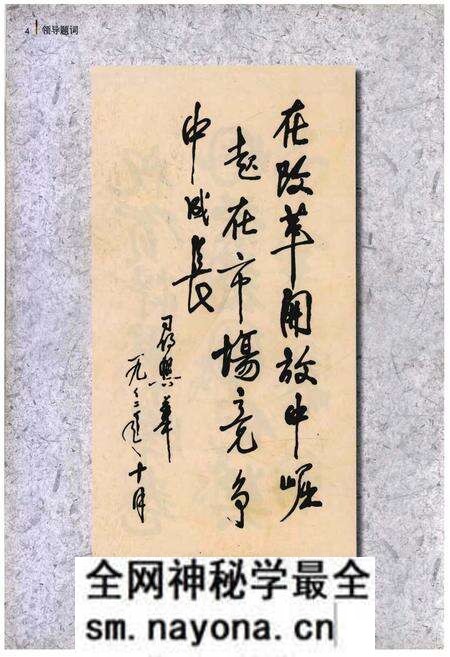 4 领导题词
在改革開放中崛
起在市場竞争
中成長
司馬懋華
一九九二年十月
全网神秘学最全
sm.nayona.cn